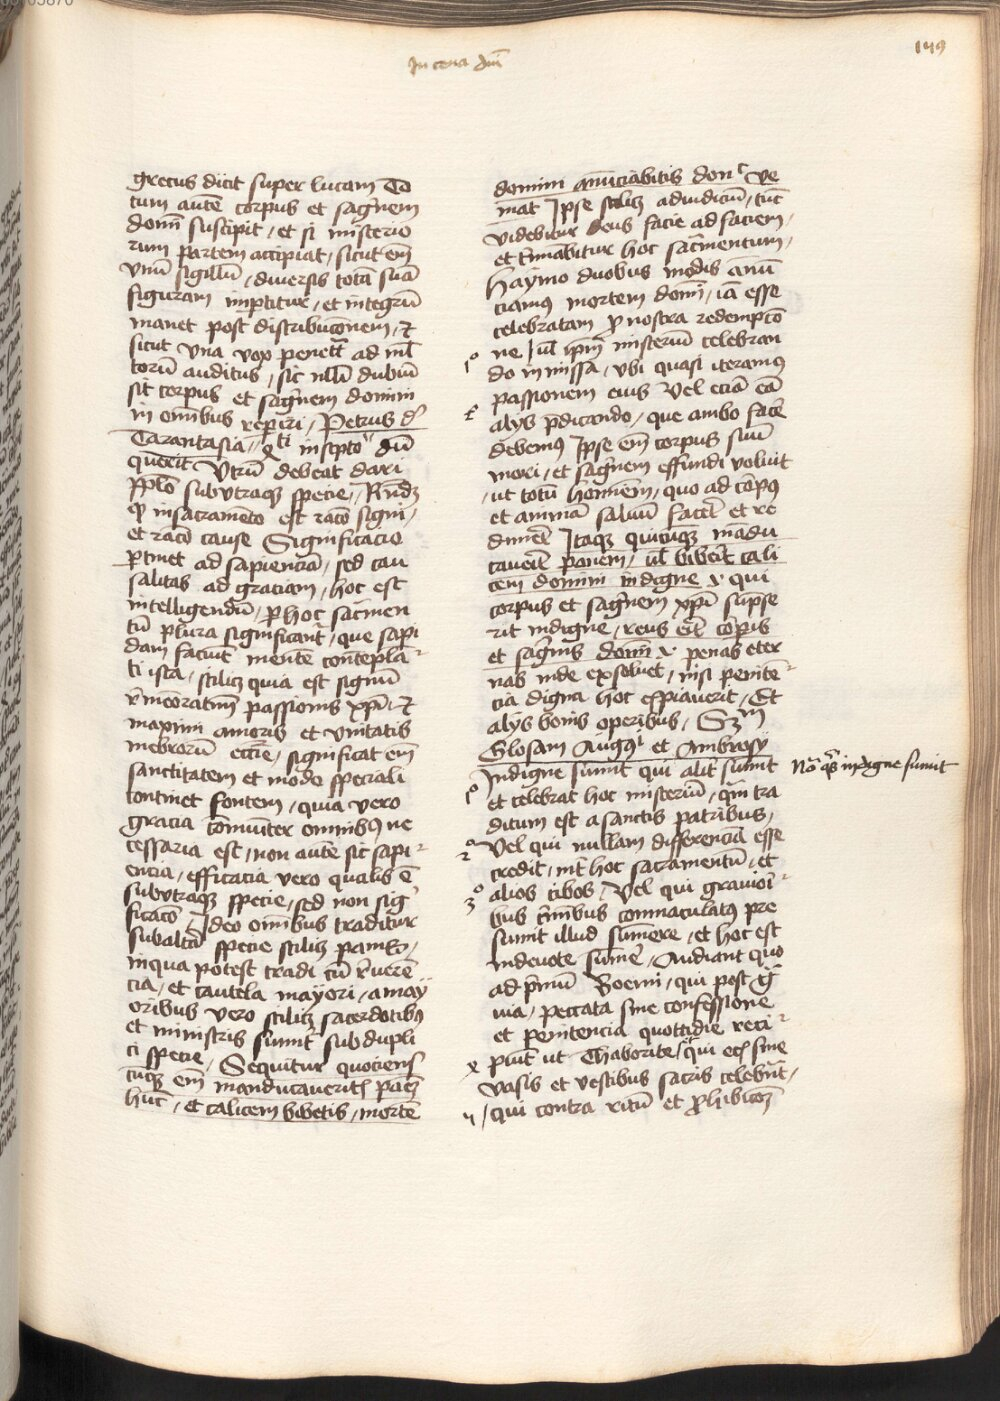 In cena dni
149
grecus dicit super lucam To
tum autē corpus et sagnem
domī suscipit / et si misterio
rum partem accipiat / sicut em̄
vnū sigillū / diversis totā suā
figuram impertitur / et integrū
manet post distribucōnem /
sicut vna vox penet ad ml
torū auditus / sic nllī dubiū
sit corpus et sagnem domini
in omībus reperiri / Petrus d
Tarantasia / inscpto dū
querit Vtrū debeat dari
pplo subvtraq specie / Rnd
q insacramēto est racō signi /
et racō cause Significacio
ptinet ad sapienciā / sed cau
salitas ad graciam / hoc est
intelligendū / p hoc sacmen
tū plura significant / que sapi
dam faciūt mentē contempla
ti ista / scilic quia est signū
rmeoratīm passionis xpī
maximi amoris et vnitatis
mēbrorū eccīe / significat em̄
sanctitatem et modo speciali
continet fontem / quia vero
gracia cōmuniter omnibus ne
cessaria est / non autē sic sapi
encia / efficacia vero qualis ē
subvtraq specie / sed non sig
ficacō Ideo omībus traditur
subaltā specie scilic panis /
inqua potest tradi cū rvuerē
cia / et cautela mayori / a may
oribus vero scilic sacerdotibus
et ministris sumit sub dupli
ci specie / Sequitur quociens
cuq em̄ manducaverit panē
hūc / et calicem bibetis / mortē
domini anūciabitis don ve
niat Ipse scilic adiudiciū / tūc
videbitur deus facie ad faciem /
et tīnabitur hoc sacmentum /
haymo duobus modis anū
ciamus mortem domī / iā esse
celebratam p nostra redempcō
ne / ul ipm̄ misteriū celebran
do in missa / vbi quasi iteramus
passionem eius Vel eciā eā
alys pdicando / que ambo facē
debemus Ipse em̄ corpus suū
mori / et sagnem effundi voluit
/ ut totū hoīem / quo ad corpus
et animā saluū faceret et re
dimet Itaq quicūq mādu
cauerit panem / ul biberit cali
cem domini indigne v qui
corpus et sagnem xpī supse
rit indigne / reus erit corpis
et sagnis domī v penas eter
nas inde exsoluet / nisi penitē
cia digna hoc expiauerit / Et
alys bonis operibus / Scdm
Glosam Augqi et Ambrosy
Indigne sumit qui alit sumit
et celebrat hoc misteriū / qm̄ tra
ditum est a sanctis patribus /
Vel qui nullam differenciā esse
credit / int hoc sacramentū / et
alios cibos / Vel qui gravioi
bus crimībus commaculatus pre
sumit illud sumere / et hoc est
indevote sumē / Audiant quo
ad pmū Boemi / qui post
via / peccata sine confessione
et penitencia quottidie reci
piūt ut Thaborite / qui eciā sine
vasis et vestibus sacris celebrāt /
/ qui contra ritū et phibicōnem
Nō qs indigne sumit